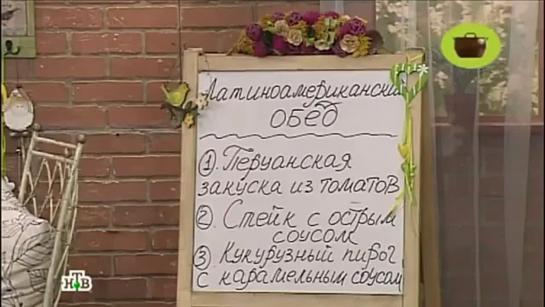 Латиноамериканский
ОБЕД
1. Перуанская
закуска из томатов
2. Стейк с острым
соусом
3. Кукурузный пирог
с карамельным соусом
НТВ